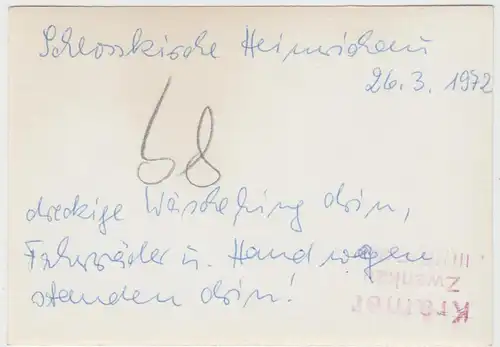 Schlosskirche Heinrichau
26.3.1972
68
dreckige Wäsche hing drin,
Fahrräder u. Handwagen
standen drin!
Krämer
Zwenkau